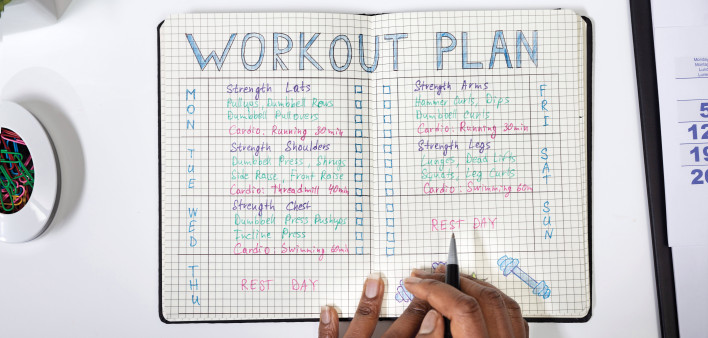 WORKOUT PLAN
MON
Strength Lats
Pullups, Dumbbell Rows
Dumbbell Pullovers
Cardio: Running 30min
TUE
Strength Shoulders
Dumbbell Press, Shrugs
Side Raise, Front Raise
Cardio: Threadmill 40min
WED
Strength Chest
Dumbbell Press Pushups
Incline Press
Cardio: Swimming 60min
THU
REST DAY
FRI
Strength Arms
Hammer Curls, Dips
Dumbbell Curls
Cardio: Running 30min
SAT
Strength Legs
Lunges, Dead Lifts
Squats, Leg Curls
Cardio: Swimming 60m
SUN
REST DAY
5
12
19
20